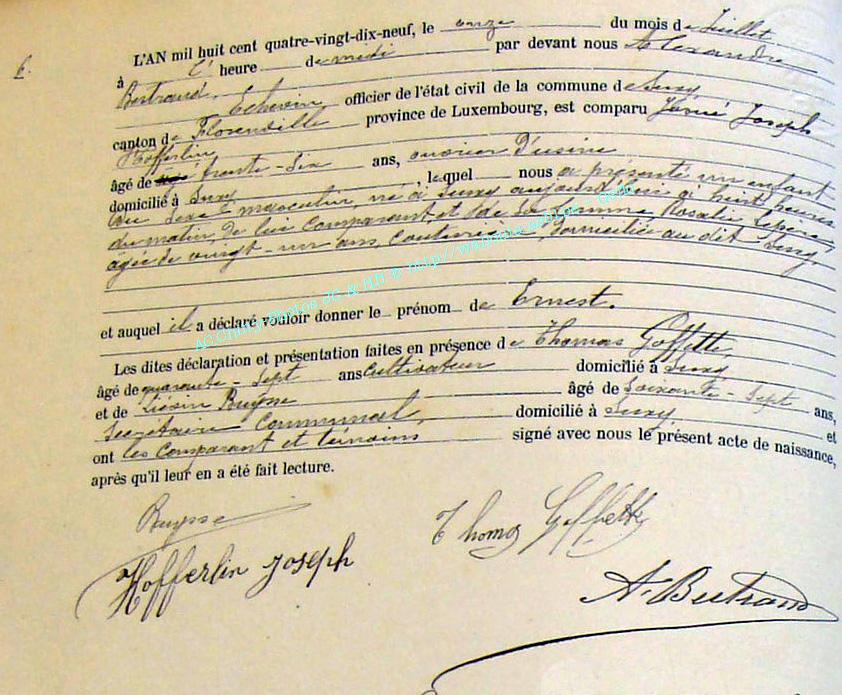 6.
L'AN mil huit cent quatre-vingt-dix-neuf, le onze du mois de Juillet
à l' heure de midi par devant nous Alexandre
Bertrand, Echevin officier de l'état civil de la commune de Suxy
canton de Florenville province de Luxembourg, est comparu Joseph
Hofferlin
âgé de trente-six ans, ouvrier d'usine
domicilié à Suxy, lequel nous a présenté un enfant
du sexe masculin, né à Suxy aujourd'hui à huit heures
du matin, de lui comparant et de sa femme, Rosalie
âgée de vingt-un ans, Couturière, domiciliée au dit Suxy,
et auquel il a déclaré vouloir donner le prénom de Ernest.
Les dites déclaration et présentation faites en présence de Thomas Goffette
âgé de quarante-sept ans Cultivateur domicilié à Suxy
et de Buysse âgé de soixante-sept ans,
Secrétaire Communal, domicilié à Suxy et
ont les Comparant et témoins signé avec nous le présent acte de naissance,
après qu'il leur en a été fait lecture.
Buysse
Thomas Goffette
Hofferlin Joseph
A. Bertrand